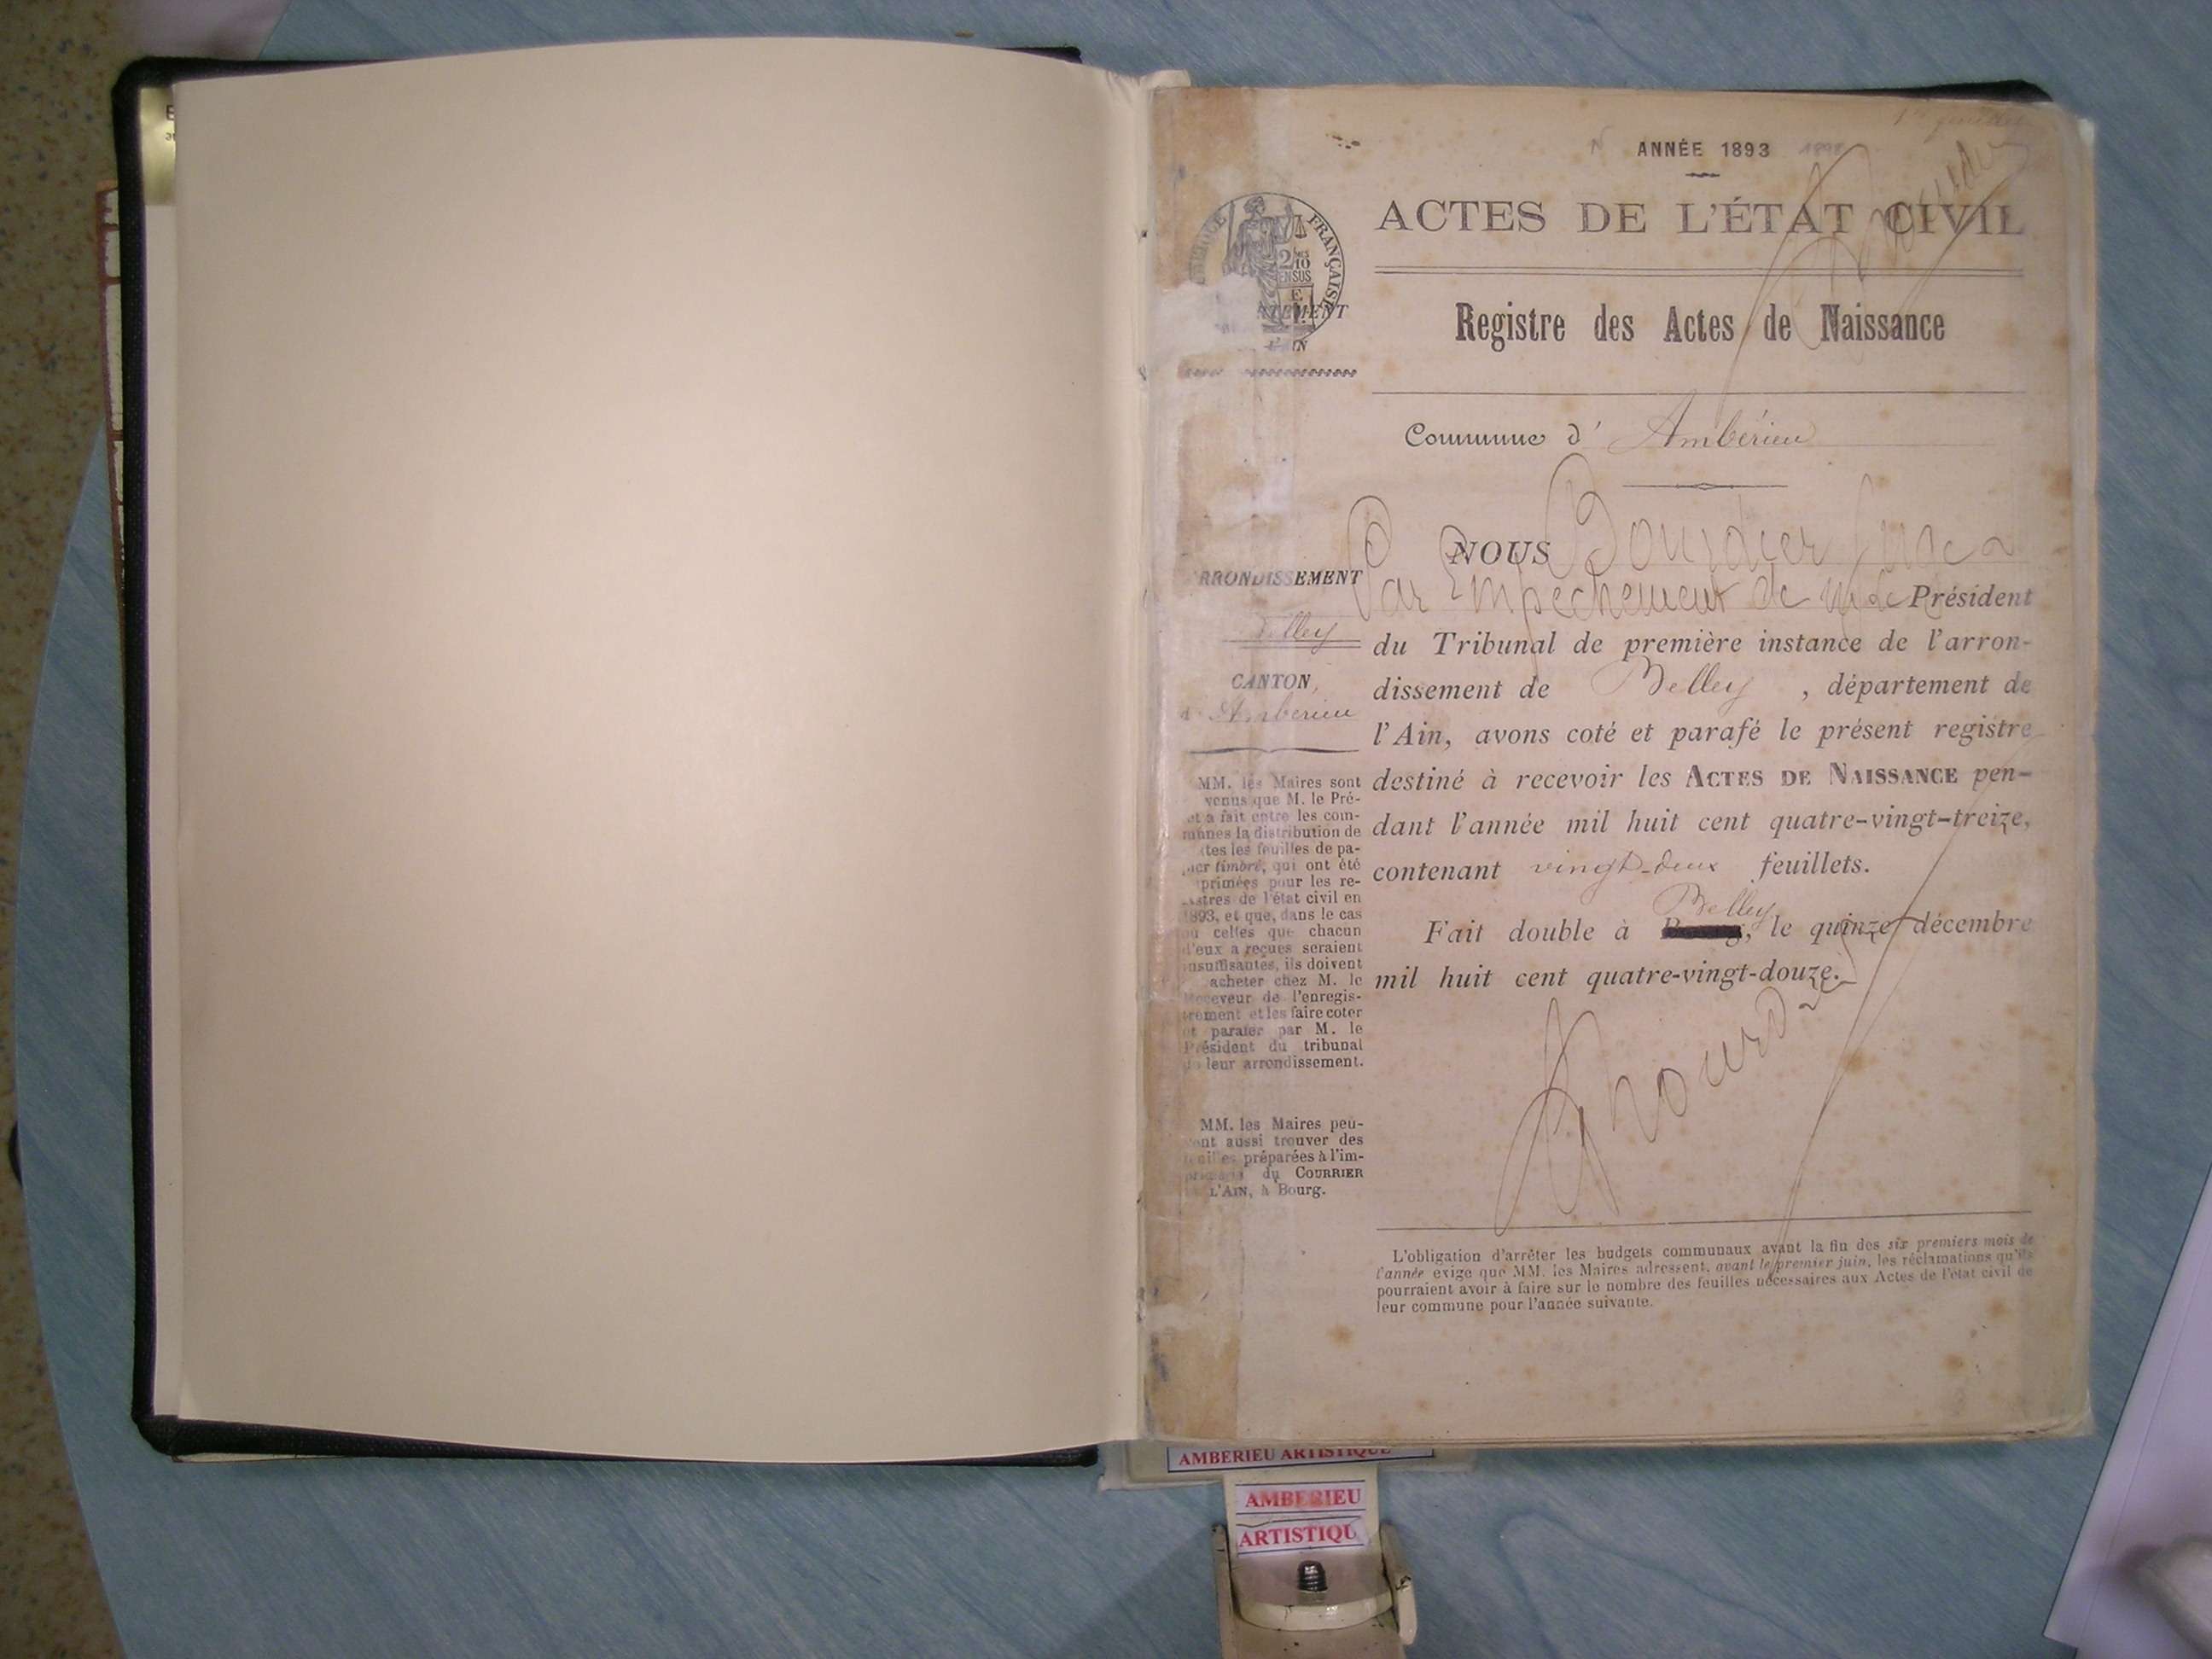 1er feuillet
ANNÉE 1893
ACTES DE L'ÉTAT CIVIL
FRANÇAISE
2/10
EN SUS
Registre des Actes de Naissance
Commune d' Ambérieu
NOUS Bourdier Juge
Par Empêchement de Mr le Président
du Tribunal de première instance de l'arron-
dissement de Belley , département de
l'Ain, avons coté et parafé le présent registre
destiné à recevoir les ACTES DE NAISSANCE pen-
dant l'année mil huit cent quatre-vingt-treize,
contenant vingt-deux feuillets.
Belley
Fait double à , le quinze décembre
mil huit cent quatre-vingt-douze.
RRONDISSEMENT
Belley
CANTON
d'Ambérieu
MM. les Maires sont
venus que M. le Pré-
et a fait entre les com-
munes la distribution de
tes les feuilles de pa-
ier timbré, qui ont été
primées pour les re-
stres de l'état civil en
1893, et que, dans le cas
où celles que chacun
d'eux a reçues seraient
nsuffisantes, ils doivent
acheter chez M. le
Receveur de l'enregis-
trement et les faire coter
et parafer par M. le
Président du tribunal
de leur arrondissement.
MM. les Maires peu-
vent aussi trouver des
feuilles préparées à l'im-
primerie du COURRIER
L'AIN, à Bourg.
L'obligation d'arrêter les budgets communaux avant la fin des six premiers mois de
l'année exige que MM. les Maires adressent, avant le premier juin, les réclamations qu'ils
pourraient avoir à faire sur le nombre des feuilles nécessaires aux Actes de l'état civil de
leur commune pour l'année suivante.
AMBERIEU ARTISTIQUE
AMBERIEU
ARTISTIQU